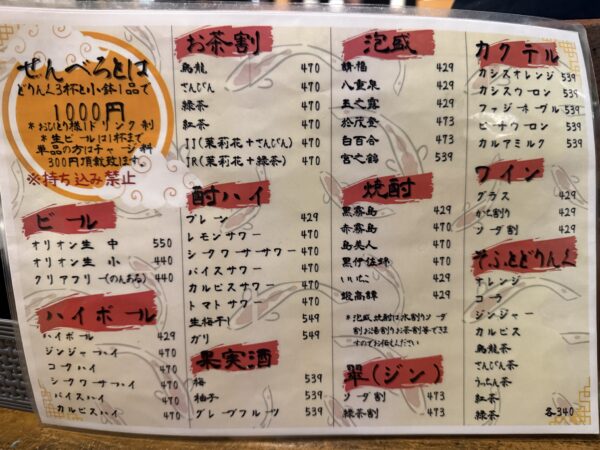 せんべろとは
どりんく3杯と小鉢1品で
1000円
*おひとり様1ドリンク制
*生ビールは1杯まで
単品の方はチャージ料
300円頂戴致します。
※持ち込み禁止
ビール
オリオン生 中 550
オリオン生 小 440
クリアフリー(のんある) 440
ハイボール
ハイボール 429
ジンジャーハイ 470
コークハイ 470
シークワサーハイ 470
バイスハイ 470
カルピスハイ 470
お茶割
烏龍 470
さんぴん 470
緑茶 470
紅茶 470
JJ(茉莉花+さんぴん) 470
JR(茉莉花+緑茶) 470
酎ハイ
プレーン 429
レモンサワー 470
シークワーサーサワー 470
バイスサワー 470
カルピスサワー 470
トマトサワー 470
生梅干し 549
ガリ 549
果実酒
梅 539
柚子 539
グレープフルーツ 539
泡盛
請福 429
八重泉 429
五之露 429
於茂登 473
白百合 473
宮之鶴 539
焼酎
黒霧島 429
赤霧島 470
島美人 470
黒伊佐錦 470
いいちこ 429
鍛高譚 429
*泡盛、焼酎は水割りソーダ
割お湯割りお茶割等できま
すのでお伝えください
翠(ジン)
ソーダ割 473
緑茶割 473
カクテル
カシスオレンジ 539
カシスウーロン 539
ファジーネーブル 539
ピーチウーロン 539
カルアミルク 539
ワイン
グラス 429
かち割り 429
ソーダ割 429
そふとどりんく
オレンジ
コーラ
ジンジャー
カルピス
烏龍茶
さんぴん茶
うっちん茶
紅茶
緑茶 各340